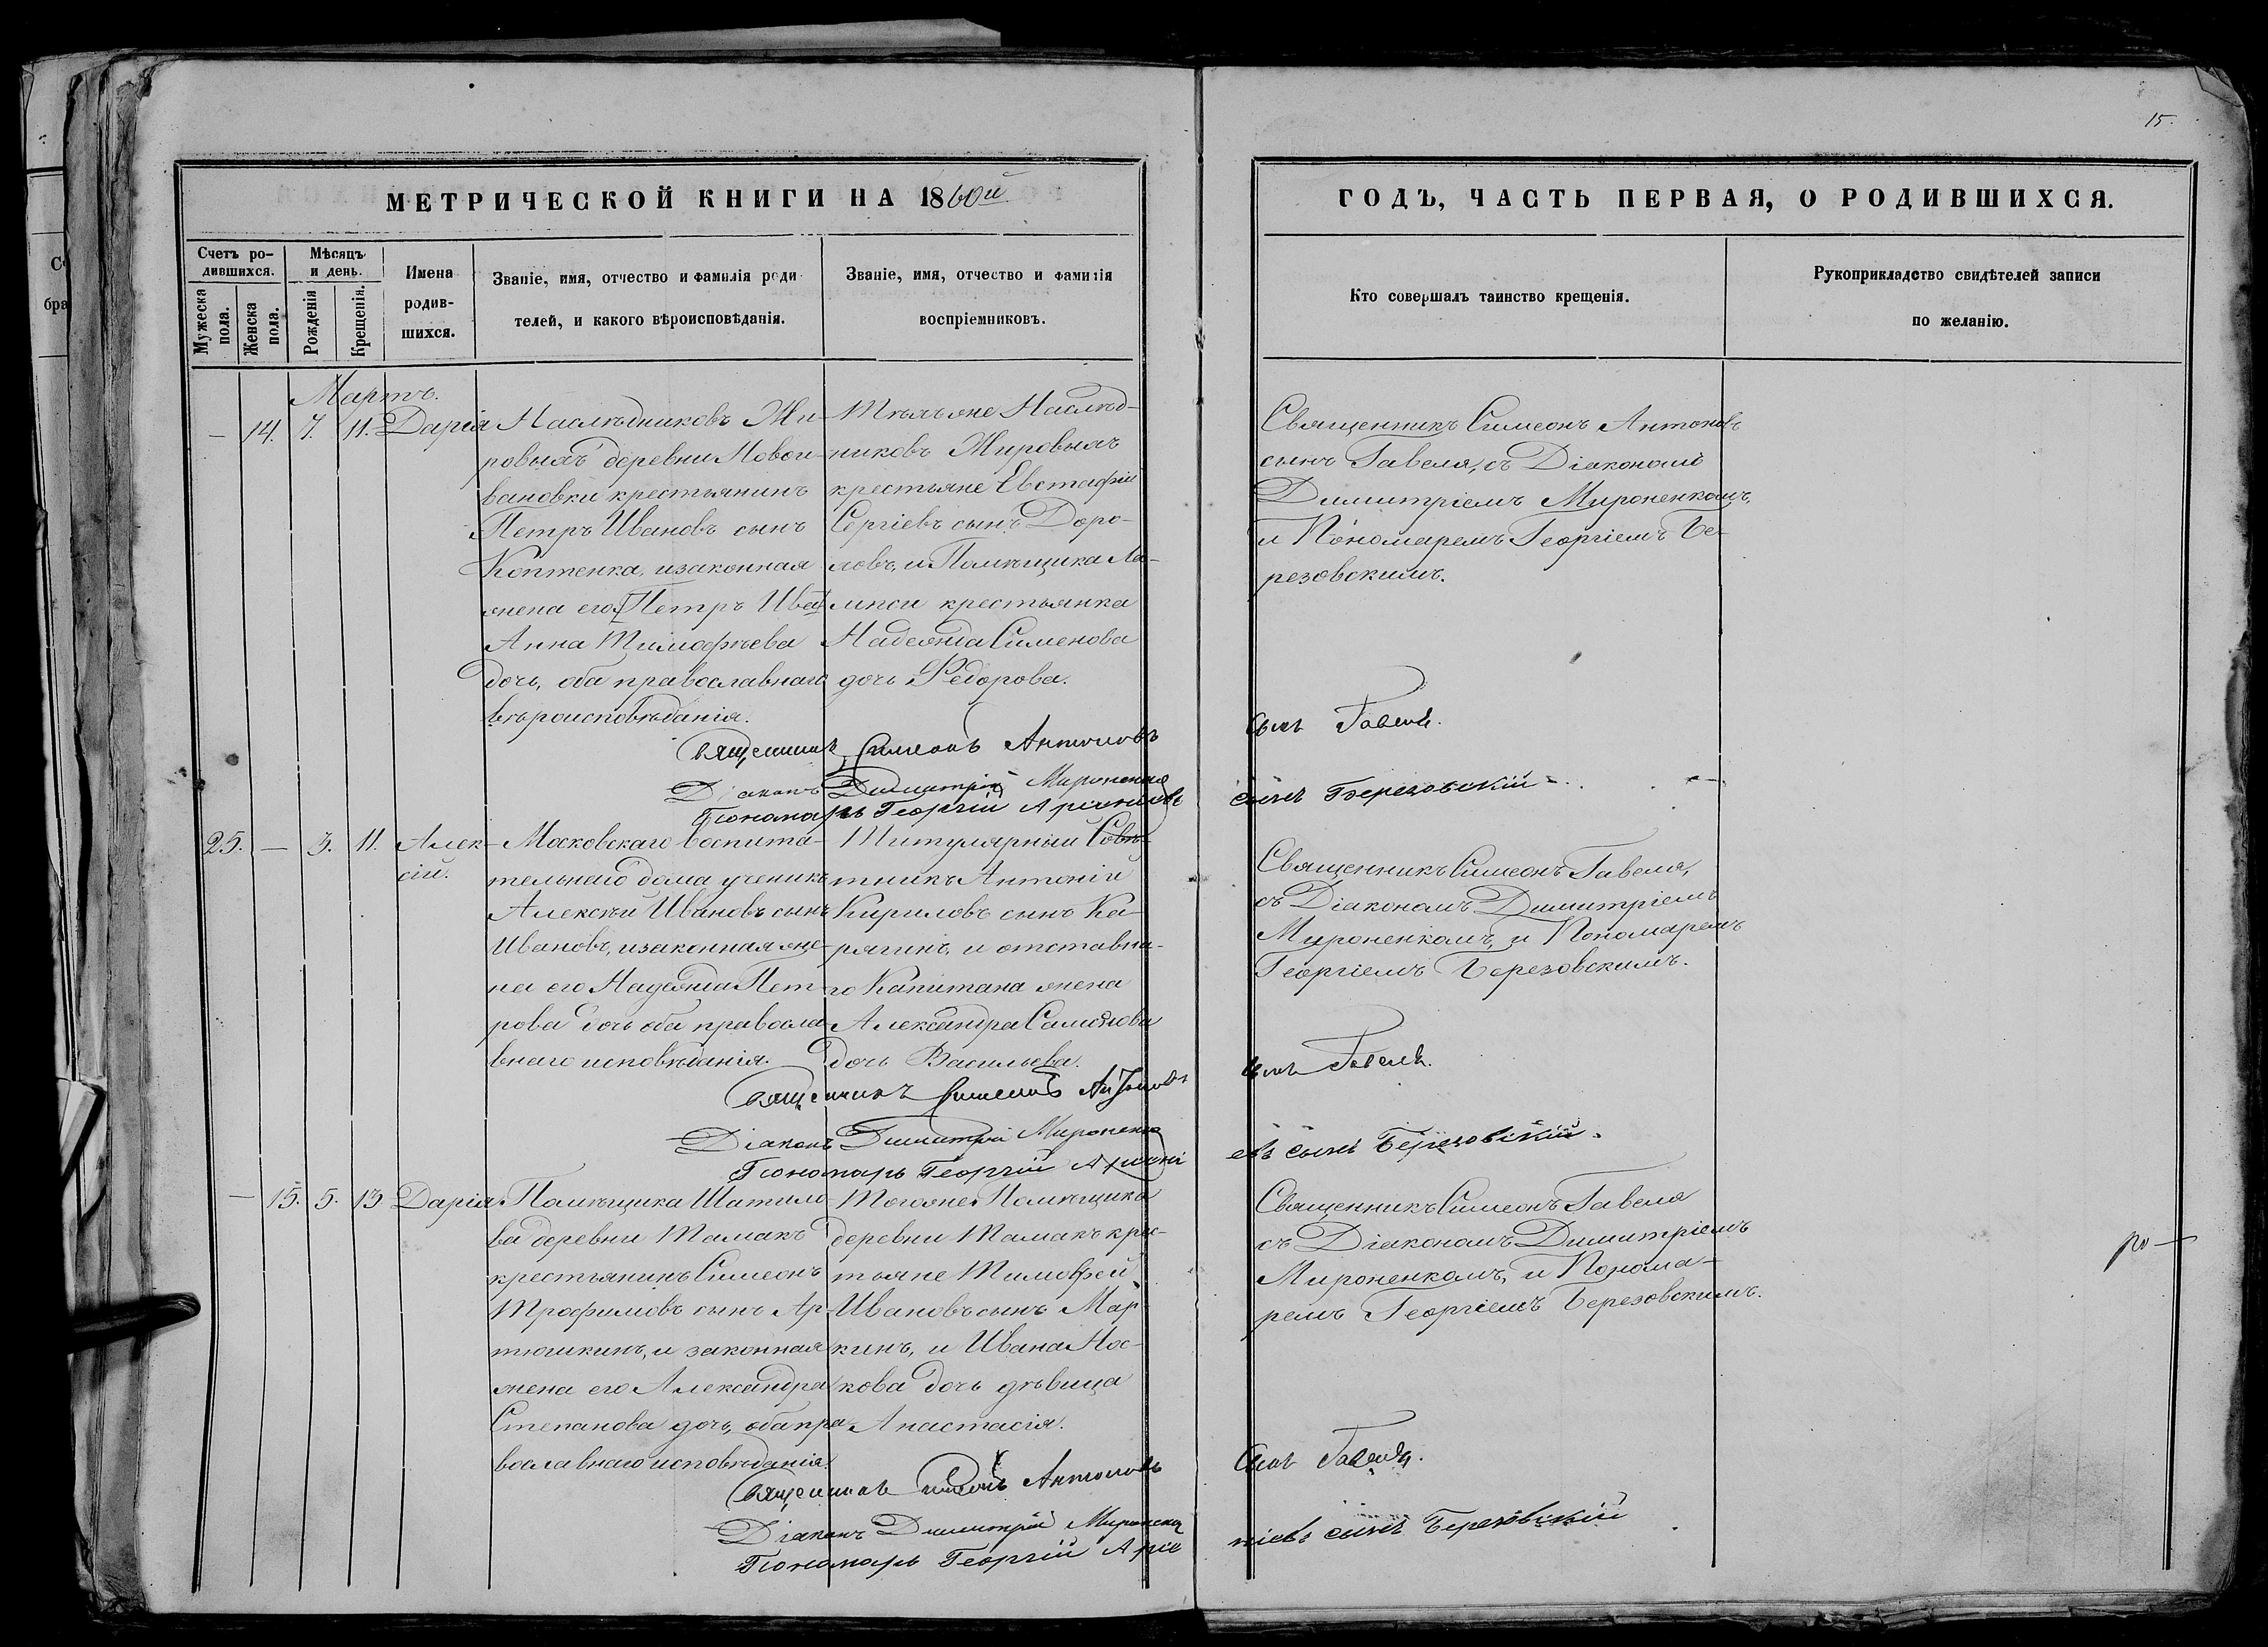 15.
МЕТРИЧЕСКОЙ КНИГИ НА 1860й
ГОДЪ, ЧАСТЬ ПЕРВАЯ, О РОДИВШИХСЯ.
Счетъ ро-
дившихся.
Мужеска пола.
Женска пола.
Мѣсяцъ
и день.
Рожденія
Крещенія.
Имена
родив-
шихся.
Званіе, имя, отчество и фамилія роди
телей, и какого вѣроисповѣданія.
Званіе, имя, отчество и фамилія
воспріемниковъ.
Кто совершалъ таинство крещенія.
Рукоприкладство свидѣтелей записи
по желанію.
Мартъ.
— 14. 7. 11. Дарія
Наслѣдниковъ Жи-
ровыхъ деревни Новои-
вановки крестьянинъ
Петръ Ивановъ сынъ
Коптенка, изаконная
жена его Петръ Ива
Анна Тимофѣева
дочь, оба православнаго
вѣроисповѣданія.
Тѣхъ же Наслѣд-
никовъ Жировыхъ
крестьяне Евстафій
Сергіевъ сынъ Доро-
ховъ, и Помѣщика Ла-
мпси крестьянка
Надежда Сименова
дочь Федорова.
Священникъ Симеонъ Антоновъ
сынъ Гавеля, съ Діакономъ
Димитріемъ Мироненкомъ,
и Пономаремъ Георгіемъ Бе-
резовскимъ.
Священникъ Симеонъ Антоновъ сынъ Гавеля.
Діаконъ Димитрій Мироненко
Пономарь Георгій сынъ Березовскій
25. — 3. 11. Алек-
сій.
Московскаго воспита-
тельнаго дома ученикъ
Алексѣй Ивановъ сынъ
Ивановъ, изаконная же-
на его Надежда Пет-
рова дочь оба правосла-
внаго исповѣданія.
Титулярный Совѣ-
тникъ Антоній
Кириловъ сынъ Ка-
рягинъ, и отставна-
го Капитана жена
Александра Самойлова
дочь Васильева.
Священникъ Симеонъ Гавеля,
съ Діакономъ Димитріемъ
Мироненкомъ, и Пономаремъ
Георгіемъ Березовскимъ.
Священникъ Симеонъ Антоновъ сынъ Гавеля.
Діаконъ Димитрій Мироненко
Пономарь Георгій евъ сынъ Березовскій.
— 15. 5. 13 Дарія
Помѣщика Шатило
ва деревни Тамакъ
крестьянинъ Симеонъ
Трофимовъ сынъ Ар-
тюшкинъ, и законная
жена его Александра
Степанова дочь, оба пра
вославнаго исповѣданія.
Тогоже Помѣщика
деревни Тамакъ крес-
тьяне Тимофей
Ивановъ сынъ Мар-
кинъ, и Ивана Нос-
кова дочь дѣвица
Анастасія.
Священникъ Симеонъ Гавеля
съ Діакономъ Димитріемъ
Мироненкомъ, и Понома-
ремъ Георгіемъ Березовскимъ.
Священникъ Симеонъ Антоновъ сынъ Гавеля.
Діаконъ Димитрій Мироненко
Пономарь Георгій сынъ Березовскій
ро—